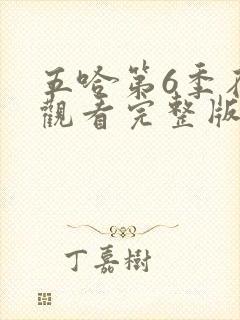 五哈第6季在
觀看完整版
丁嘉樹